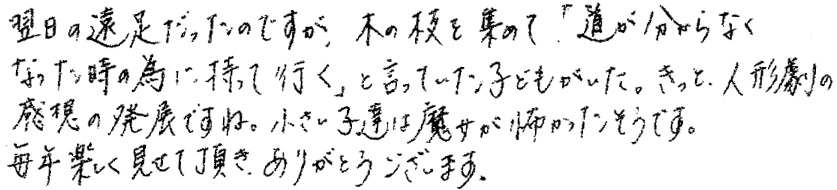 翌日の遠足だったのですが、木の枝を集めて「道が分からなく
なった時の為に持って行く」と言っていた子どもがいた。きっと、人形劇の
感想の発展ですね。小さい子達は魔女が怖かったそうです。
毎年楽しく見せて頂き、ありがとうございます。